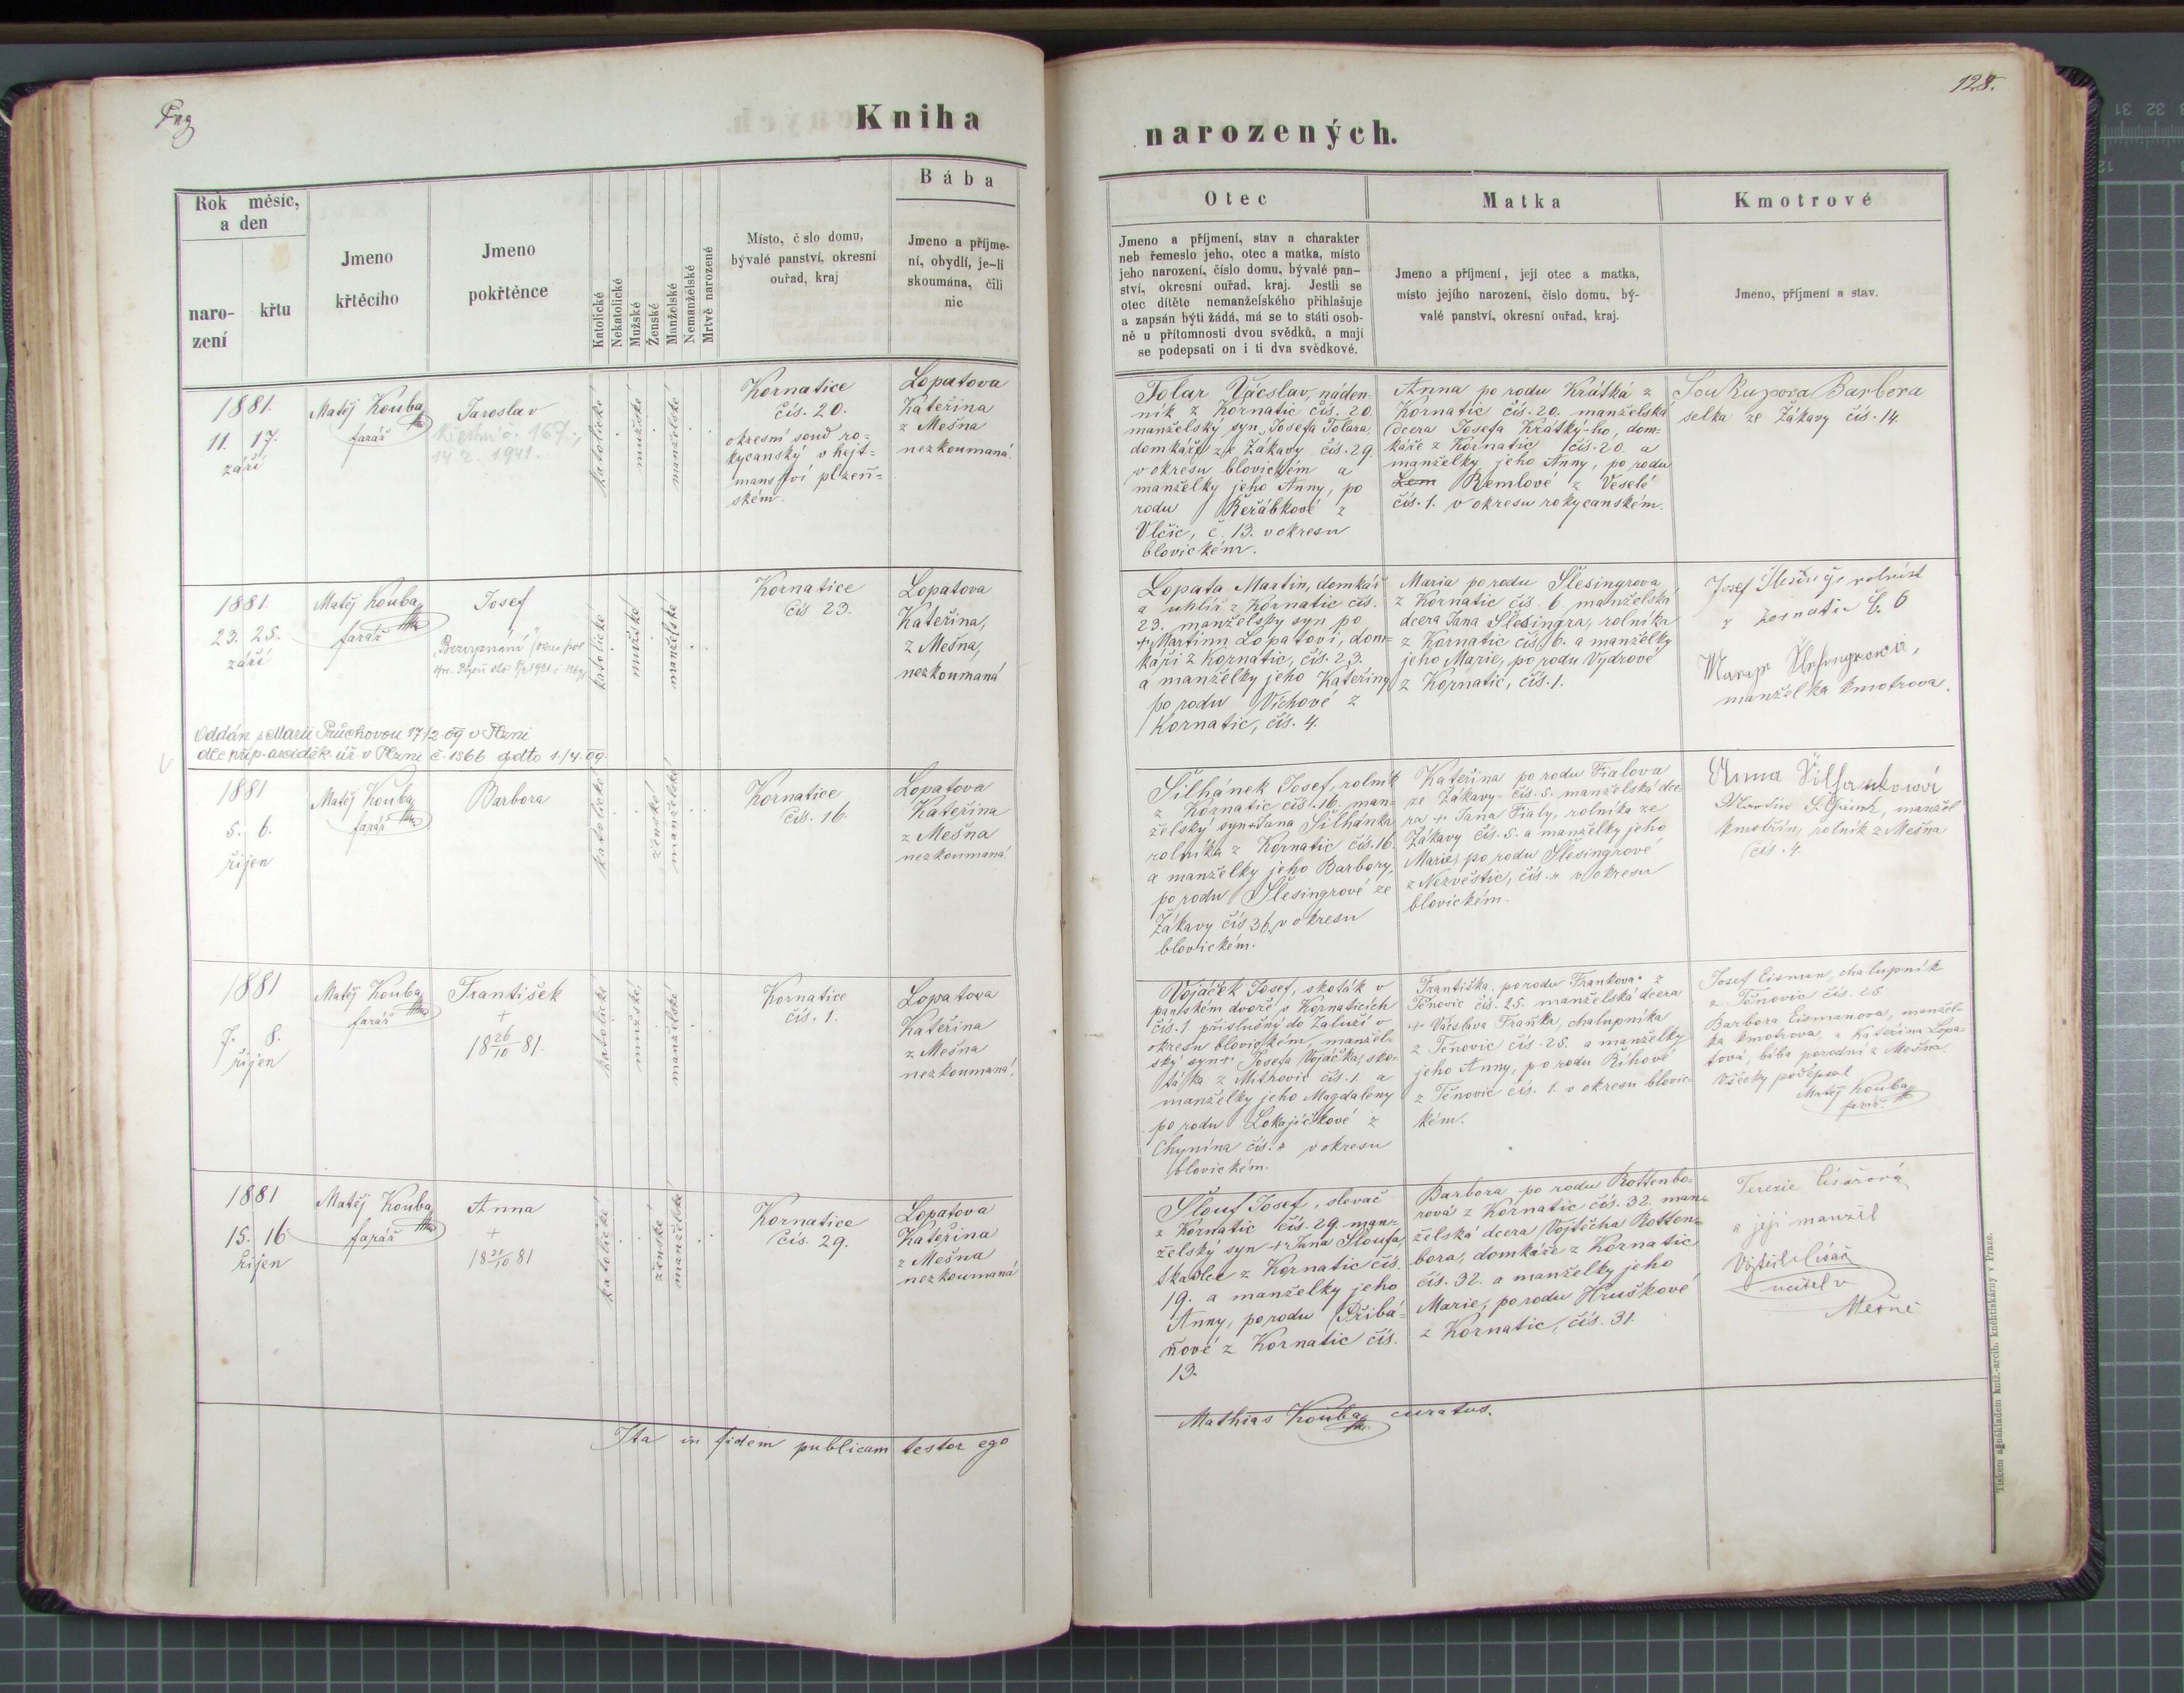 Kniha
Rok měsíc,
a den
naro-
zení
křtu
Jmeno
křtěcího
Jmeno
pokřtěnce
Katolické
Nekatolické
Mužské
Ženské
Manželské
Nemanželské
Mrtvě narozené
Místo, č slo domu,
bývalé panství, okresní
ouřad, kraj
Bába
Jmeno a příjme-
ní, obydlí, je-li
skoumána, čili
nic
1881.
11. 17.
září
Matěj Kouba
farář
Jaroslav
14 2. 1941.
katolické
mužské
manželské
Kornatice
čís. 20.
okresní soud ro-
kycanský v hejt-
manství plzeň-
ském.
Lopatova
Kateřina
z Mešna
nezkoumaná.
1881.
23. 25.
září
Matěj Kouba
farář
Josef
katolické
mužské
manželské
Kornatice
čís 23.
Lopatova
Kateřina,
z Mešna,
nezkoumaná
Oddán s Marií Průchovou 17/2 09 v Plzni
dle příp. arciděk. úř. v Plzni č. 1366 ddto 1/4 09.
1881
5. 6.
říjen
Matěj Kouba
farář
Barbora
katolické
ženské
manželské
Kornatice
čís. 16.
Lopatova
Kateřina
z Mešna
nezkoumaná.
1881
7. 8.
říjen
Matěj Kouba
farář
František
+
18 26/10 81.
katolické
mužské
manželské
Kornatice
čís. 1.
Lopatova
Kateřina
z Mešna
nezkoumaná.
1881
15. 16
říjen
Matěj Kouba
farář
Anna
+
18 21/10 81
katolické
ženské
manželské
Kornatice
čís. 29.
Lopatova
Kateřina
z Mešna
nezkoumaná
Ita in fidem publicam testor ego
128.
narozených.
Otec
Jmeno a příjmení, stav a charakter
neb řemeslo jeho, otec a matka, místo
jeho narození, číslo domu, bývalé pan-
ství, okresní ouřad, kraj. Jestli se
otec dítěte nemanželského přihlašuje
a zapsán býti žádá, má se to státi osob-
ně u přítomnosti dvou svědků, a mají
se podepsati on i ti dva svědkové.
Matka
Jmeno a příjmení, její otec a matka,
místo jejího narození, číslo domu, bý-
valé panství, okresní ouřad, kraj.
Kmotrové
Jmeno, příjmení a stav.
Tolar Václav, náden-
ník z Kornatic čís. 20.
manželský syn Josefa Tolara,
domkáře ze Zákavy čís. 29.
v okresu blovickém a
manželky jeho Anny, po
rodu Řeřábkové z
Vlčic, č. 13. v okresu
blovickém.
Anna po rodu Krátká z
Kornatic čís. 20. manželská
dcera Josefa Krátký-ho, dom-
káře z Kornatic čís. 20. a
manželky jeho Anny, po rodu
Lem Remlové z Veselé
čís. 1. v okresu rokycanském.
Soukupova Barbora
selka ze Žákavy čís. 14.
Lopata Martin, domkář
a uhlíř z Kornatic čís.
23. manželský syn po
+ Martinu Lopatovi, dom-
káři z Kornatic, čís. 23.
a manželky jeho Kateřiny
po rodu Víchové z
Kornatic, čís. 4.
Maria po rodu Šlesingrova
z Kornatic čís. 6 manželská
dcera Jana Šlesingra, rolníka
z Kornatic čís. 6. a manželky
jeho Marie, po rodu Vydrové
z Kornatic, čís. 1.
Josef Šlesingr rolník
z Kornatic č. 6
manželka kmotrova.
Šilhánek Josef, rolník
z Kornatic čís. 16. man-
želský syn + Jana Šilhánka
rolníka z Kornatic čís. 16.
a manželky jeho Barbory,
po rodu Šlesingrové ze
Žákavy čís 36. v okresu
blovickém.
Kateřina po rodu Fialova
ze Žákavy čís. 5. manželská dce
ra + Jana Fialy, rolníka ze
Žákavy čís. 5. a manželky jeho
Marie, po rodu Šlesingrové
z Nezvěstic, čís. v okresu
blovickém.
Anna
Martin manžel
kmotřin, rolník z Mešna
čís. 4.
Vojáček Josef, skoták v
panském dvoře v Kornaticích
čís. 1 příslušný do Zaluží v
okresu blovickém, manžel-
ský syn + Josefa Vojáčka, sko-
táka z Mitrovic čís. 1. a
manželky jeho Magdaleny
po rodu Lokajíčkové z
Chynína čís. v okresu
blovickém.
Františka po rodu Frankova z
Těnovic čís. 25. manželská dcera
+ Václava Fraňka, chalupníka
z Těnovic čís. 25. a manželky
jeho Anny, po rodu Říhové
z Těnovic čís. 1. v okresu blovic-
kém.
Josef Eisman, chalupník
z Těnovic čís. 28.
Barbora Eismanova, manžel-
ka kmotrova, a Kateřina Lopa-
tová, bába porodní z Mešna.
Všecky podepsal
Matěj Kouba
farář.
Šlouf Josef, slevač
z Kornatic čís. 29. man-
želský syn + Jana Šloufa,
tkadlce z Kornatic čís.
19. a manželky jeho
Anny, po rodu Přibá-
ňové z Kornatic čís.
13.
Barbora po rodu Rottenbo-
rová z Kornatic čís. 32. man-
želská dcera Vojtěcha Rotten-
bora, domkáře z Kornatic
čís. 32. a manželky jeho
Marie, po rodu Hruškové
z Kornatic, čís. 31.
Terezie Císařová
a její manžel
Vojtěch Císař
učitel v
Mešně
Mathias Kouba curatus.
Tiskem a nákladem kníž.-arcib. knihtiskárny v Praze.